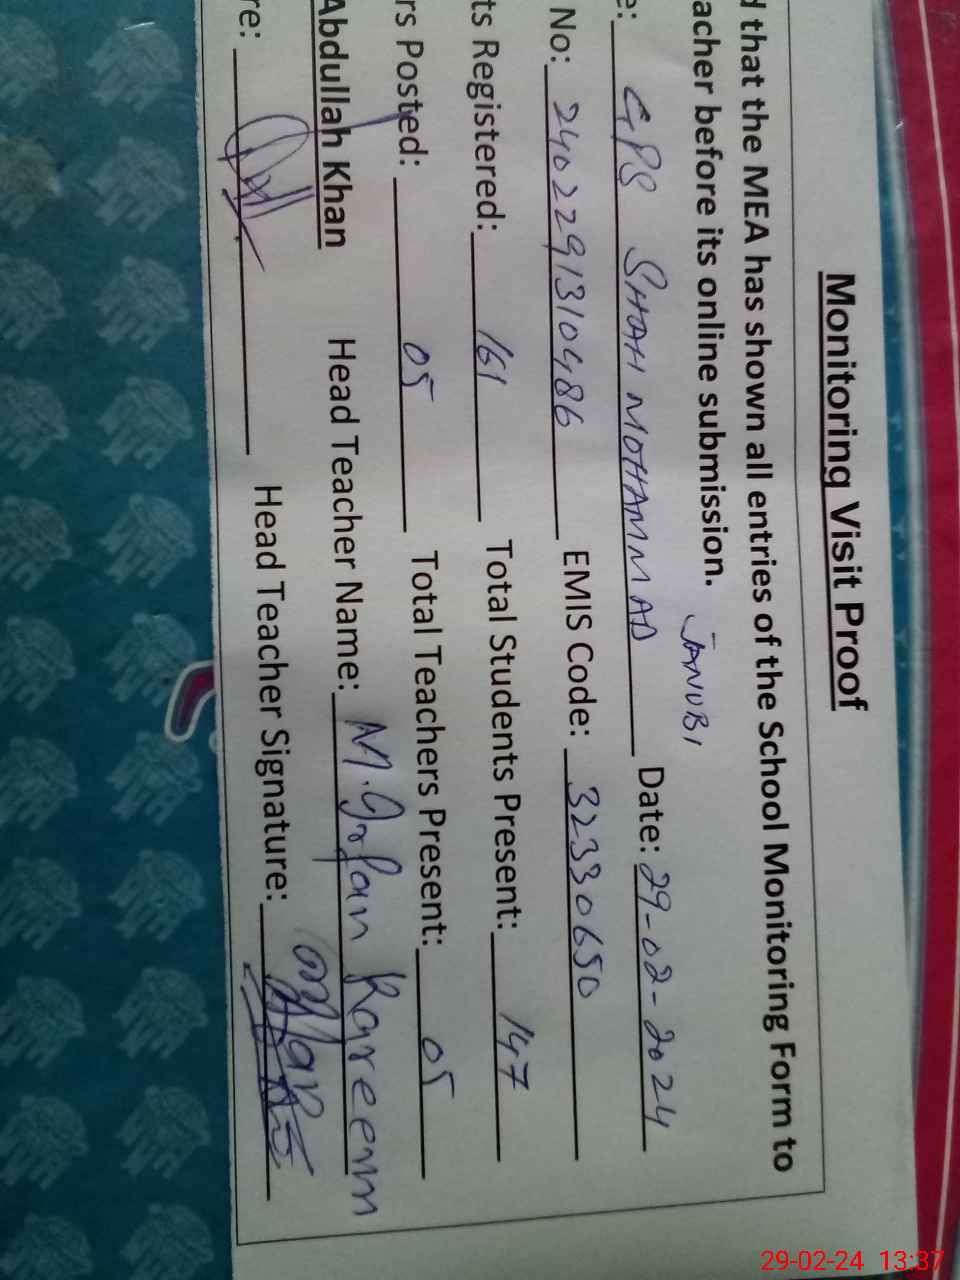 Monitoring Visit Proof
d that the MEA has shown all entries of the School Monitoring Form to
acher before its online submission.
JANUBI
e: GPS SHAH MOHAMMAD Date: 29-02-2024
No: 2402291310486 EMIS Code: 32330650
ts Registered: 161 Total Students Present: 147
rs Posted: 05 Total Teachers Present: 05
Abdullah Khan Head Teacher Name: M. Irfan Kareem
re: Head Teacher Signature:
29-02-24 13:37